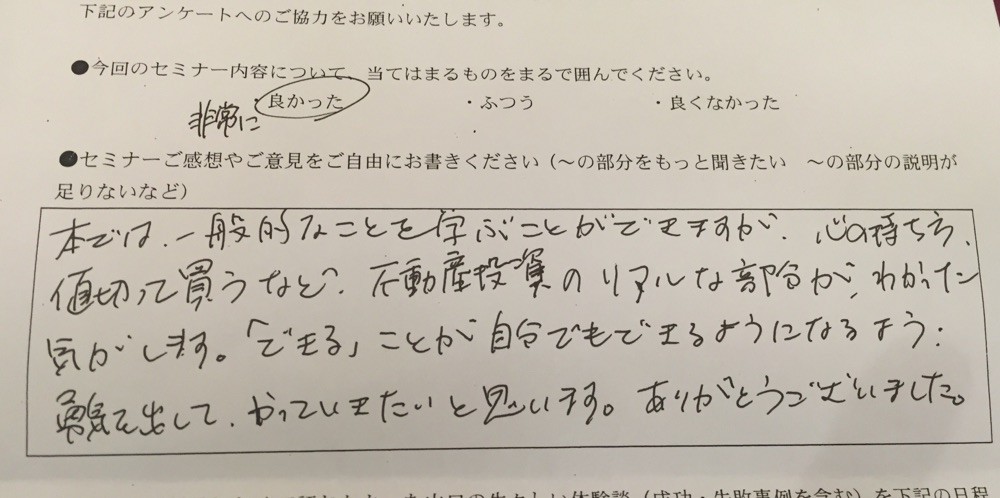 下記のアンケートへのご協力をお願いいたします。
●今回のセミナー内容について、当てはまるものをまるで囲んでください。
非常に ・良かった ・ふつう ・良くなかった
●セミナーご感想やご意見をご自由にお書きください（～の部分をもっと聞きたい　～の部分の説明が
足りないなど）
本では、一般的なことを学ぶことができますが、心の持ち方、
値切って買うなど、不動産投資のリアルな部分が、わかった
気がします。「できる」ことが自分でもできるようになるよう、
勇気を出して、やっていきたいと思います。ありがとうございました。
体験談（成功・失敗事例を含む）を下記の日程